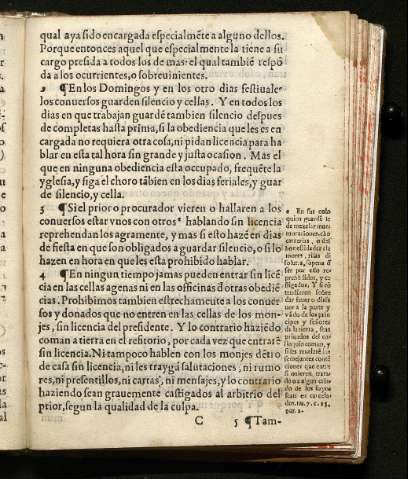 qual aya sido encargada especialmẽte a alguno dellos.
Porque entonces aquel que especialmente la tiene a su
cargo presida a todos los de mas: el qual tambiẽ respõ
da a los ocurrientes, o sobreuinientes.
2 ¶En los Domingos y en los otro dias festiuale-
los conuersos guarden silencio y cellas. Y en todos los
dias en que trabajan guardẽ tambien silencio despues
de completas hasta prima, si la obediencia que les es en
cargada no requiera otra cosa, ni pidan licencia para ha
blar en esta tal hora sin grande y justa ocasion. Mas el
que en ninguna obediencia esta ocupado, frequẽte la
yglesia, y siga el choro tãbien en los dias feriales, y guar
de silencio, y cella.
3 ¶Si el prior o procurador vieren o hallaren a los
conuersos estar vnos con otros hablando sin licencia
reprehendan los agramente, y mas si esto hazẽ en dias
de fiesta en que son obligados a guardar silencio, o si lo
hazen en hora en que les esta prohibido hablar.
4 ¶En ningun tiempo jamas pueden entrar sin licẽ
cia en las cellas agenas ni en las officinas d otras obediẽ
cias. Prohibimos tambien estrechamente a los conuer
sos y donados que no entren en las cellas de los mon-
jes, sin licencia del presidente. Y lo contrario haziẽdo
coman a tierra en el refitorio, por cada vez que entrarẽ
sin licencia. Ni tampoco hablen con los monjes dẽtro
de casa sin licencia, ni les traygã salutaciones, ni rumo
res, ni presentillos, ni cartas, ni mensajes, y lo contrario
haziendo sean grauemente castigados al arbitrio del
prior, segun la qualidad de la culpa.
C 5 ¶Tam-